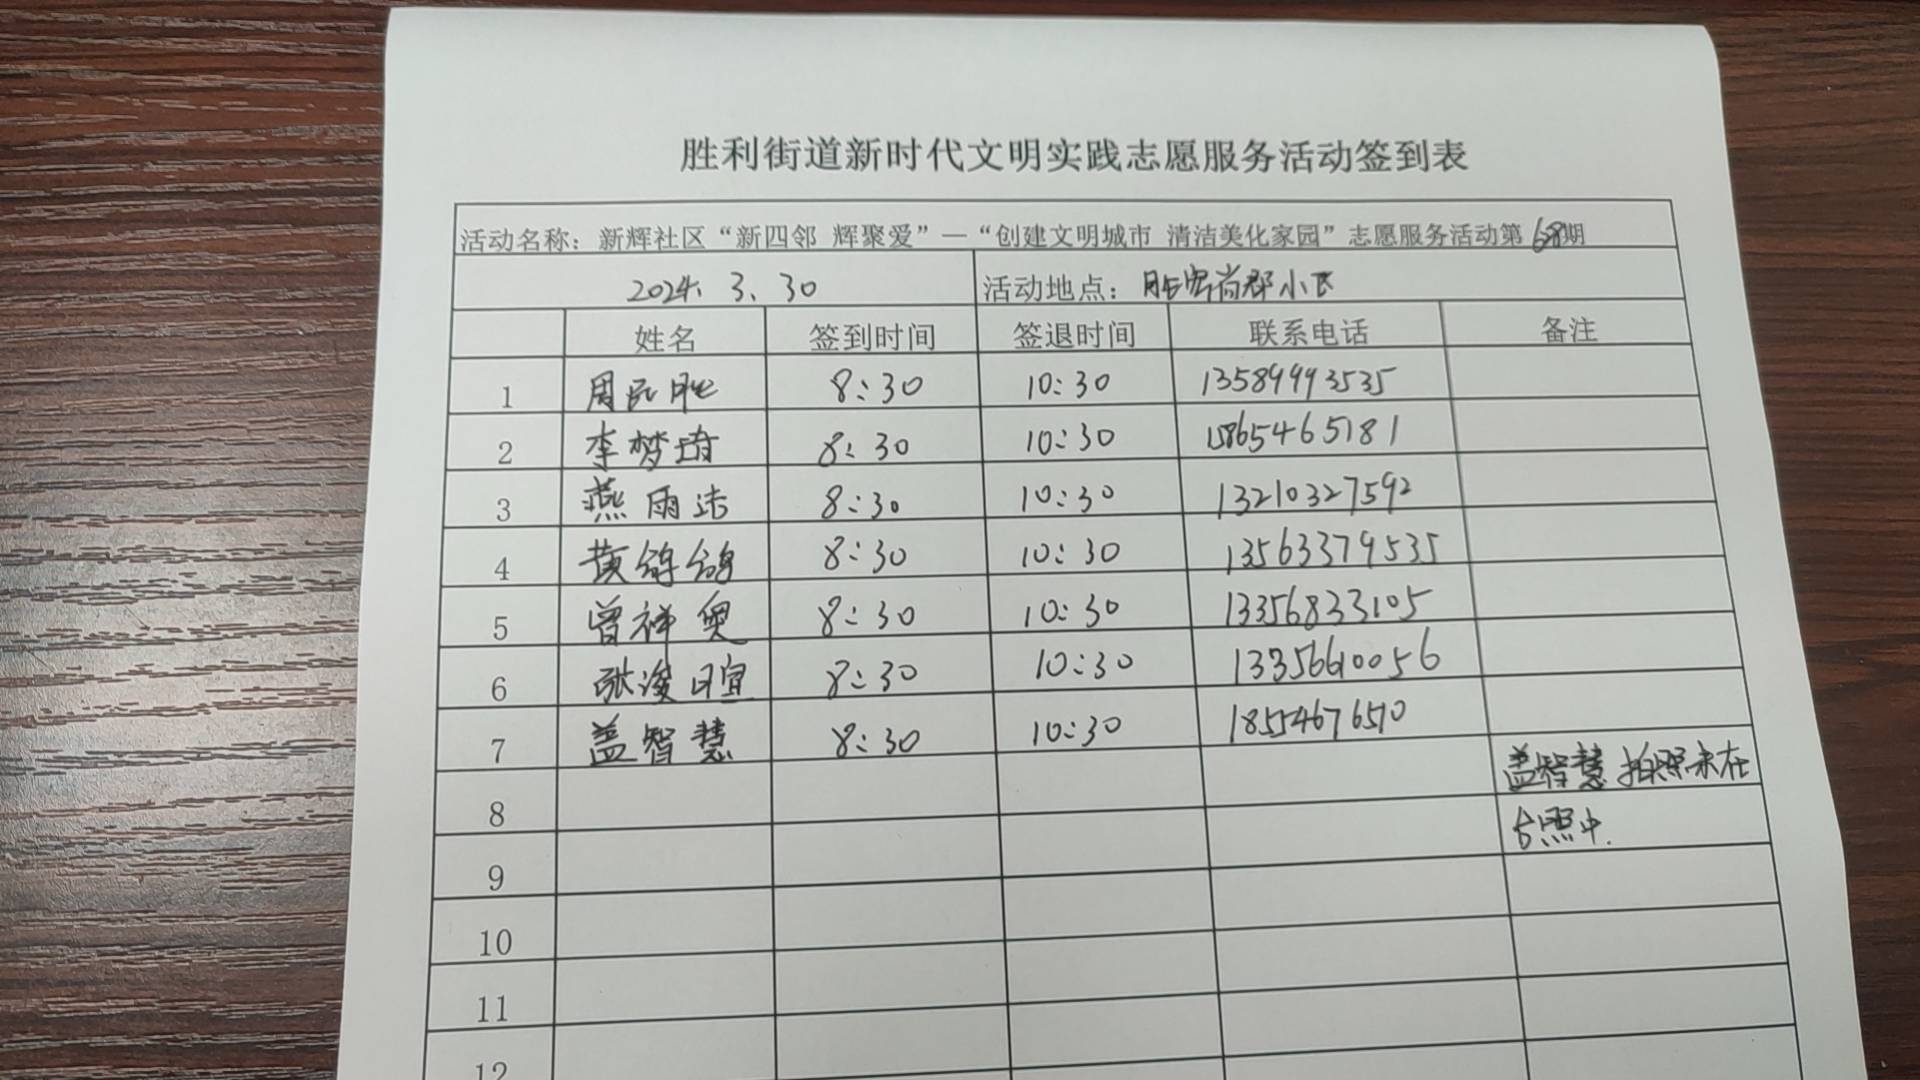 胜利街道新时代文明实践志愿服务活动签到表
活动名称：新辉社区“新四邻 辉聚爱”—“创建文明城市 清洁美化家园”志愿服务活动第68期
2024. 3. 30 活动地点：胜宏尚郡小区
姓名 签到时间 签退时间 联系电话 备注
1 周民胜 8:30 10:30 13589993535
2 李梦琦 8:30 10:30 15865465181
3 燕雨洁 8:30 10:30 13210327592
4 黄鸽鸽 8:30 10:30 13563379535
5 曾祥奥 8:30 10:30 13356833105
6 张浚暄 8:30 10:30 13356610056
7 盖智慧 8:30 10:30 18554676510
8 盖智慧拍照未在
9 合照中.
10
11
12